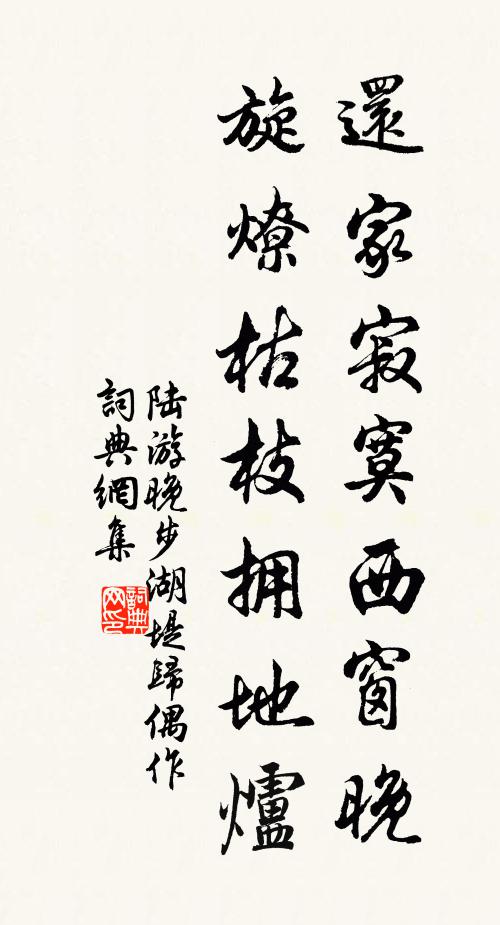 還家寂寞西窗晚
旋燎枯枝拥地爐
陆游晚步湖堤歸偶作
詞典網集
詞典
网印